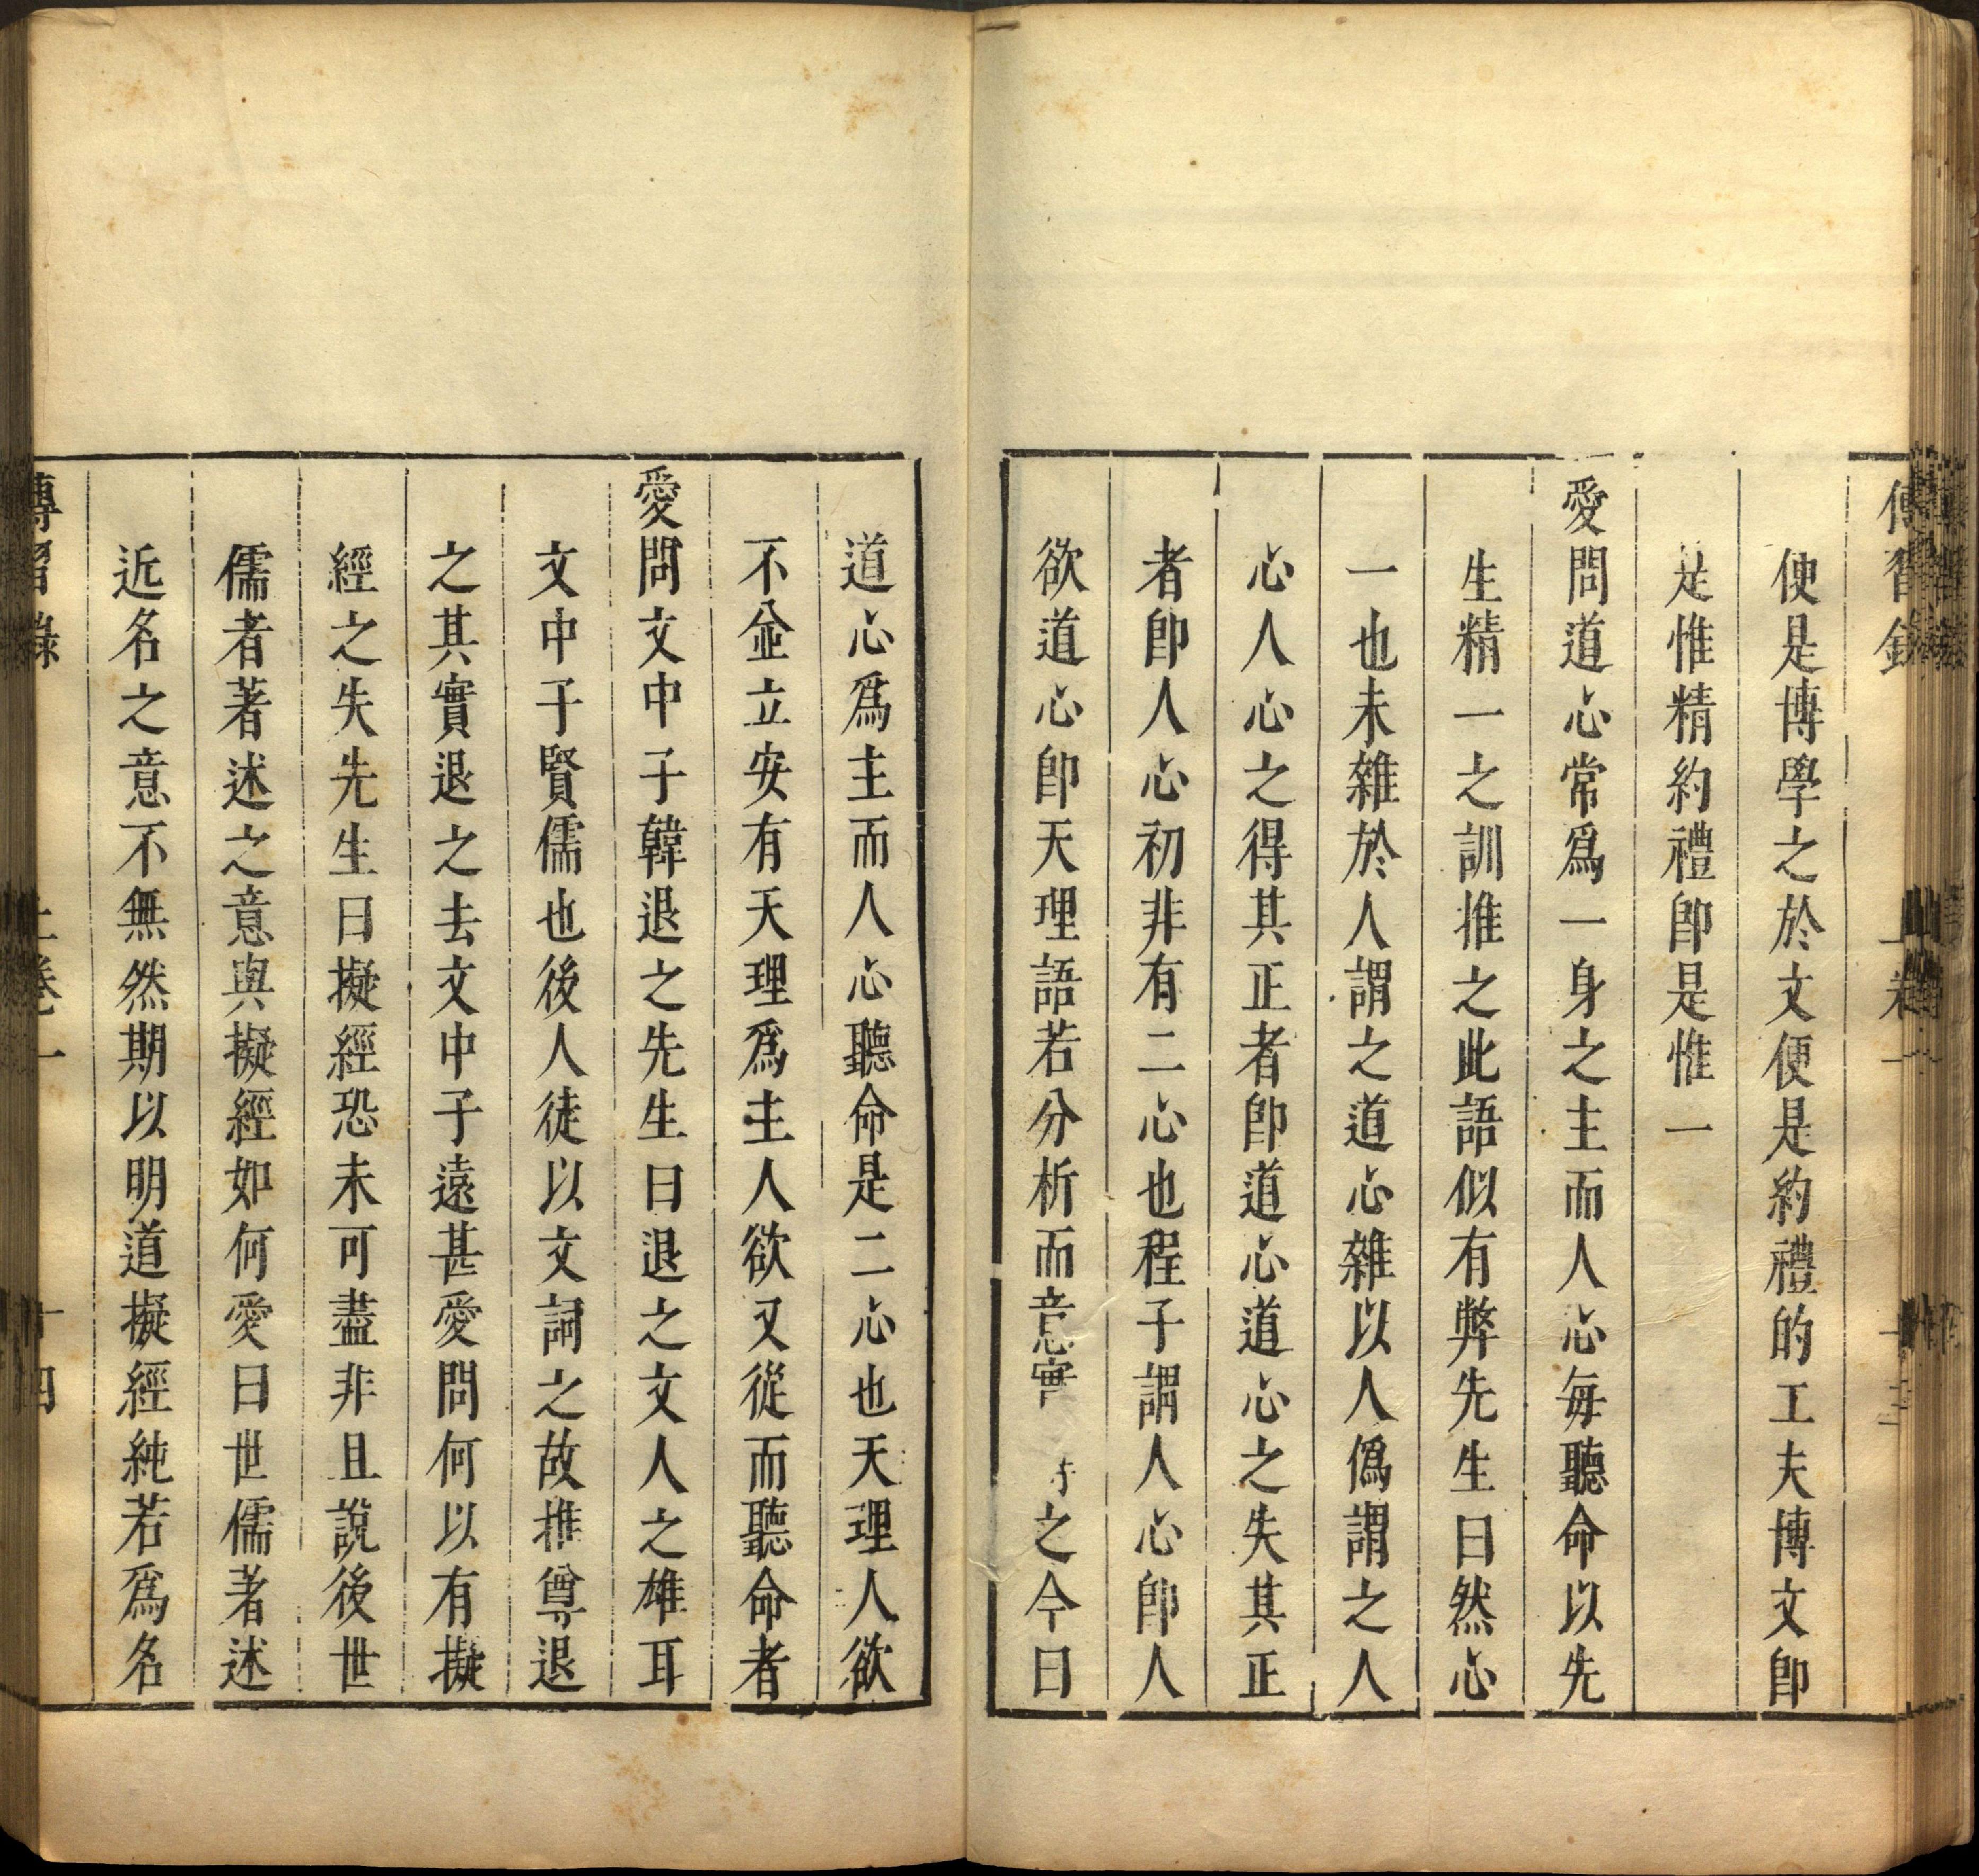 傳習錄
上卷一
便是博學之於文便是約禮的工夫博文卽
是惟精約禮卽是惟一
愛問道心常爲一身之主而人心每聽命以先
生精一之訓推之此語似有弊先生曰然心
一也未雜於人謂之道心雜以人僞謂之人
心人心之得其正者卽道心道心之失其正
者卽人心初非有二心也程子謂人心卽人
欲道心卽天理語若分析而意實之今曰
道心爲主而人心聽命是二心也天理人欲
不並立安有天理爲主人欲又從而聽命者
愛問文中子韓退之先生曰退之文人之雄耳
文中子賢儒也後人徒以文詞之故推尊退
之其實退之去文中子遠甚愛問何以有擬
經之失先生曰擬經恐未可盡非且說後世
儒者著述之意與擬經如何愛曰世儒著述
近名之意不無然期以明道擬經純若爲名
傳習錄
上卷一
十四